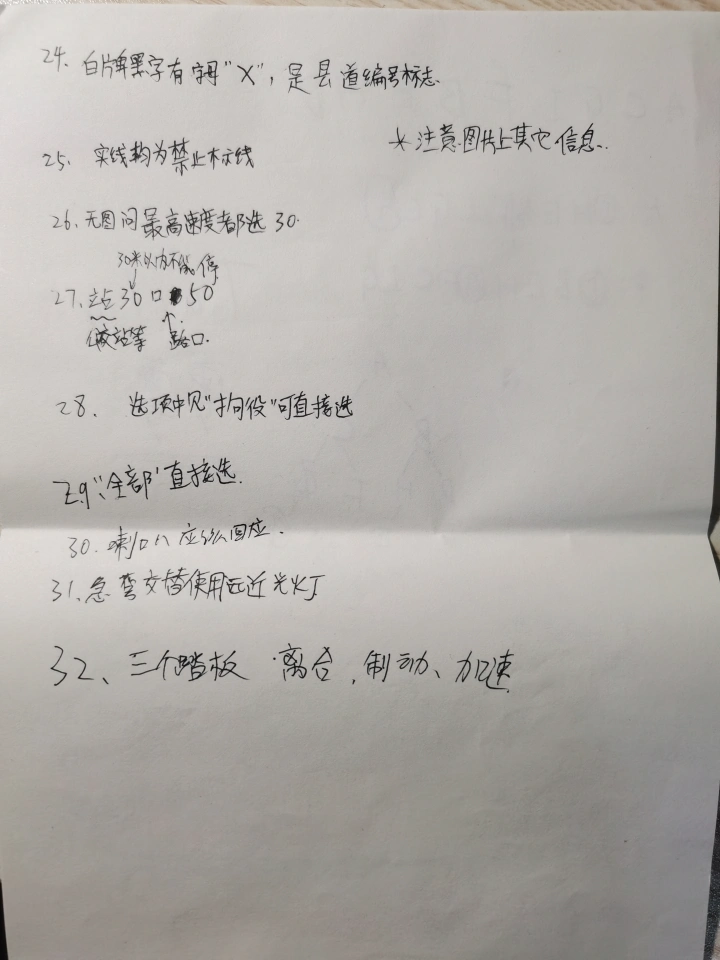 24、白牌黑字有字母"X"，是县道编号标志.
*注意图片上其它信息.
25、实线均为禁止标线
26、无图问最高速度都选30.
30米以内不能停
27、站30口50
路口.
28、选项中见"拘役"可直接选
29、"全部"直接选.
30.喇叭应以回应.
31、急弯交替使用远近光灯
32、三个踏板 离合，制动、加速